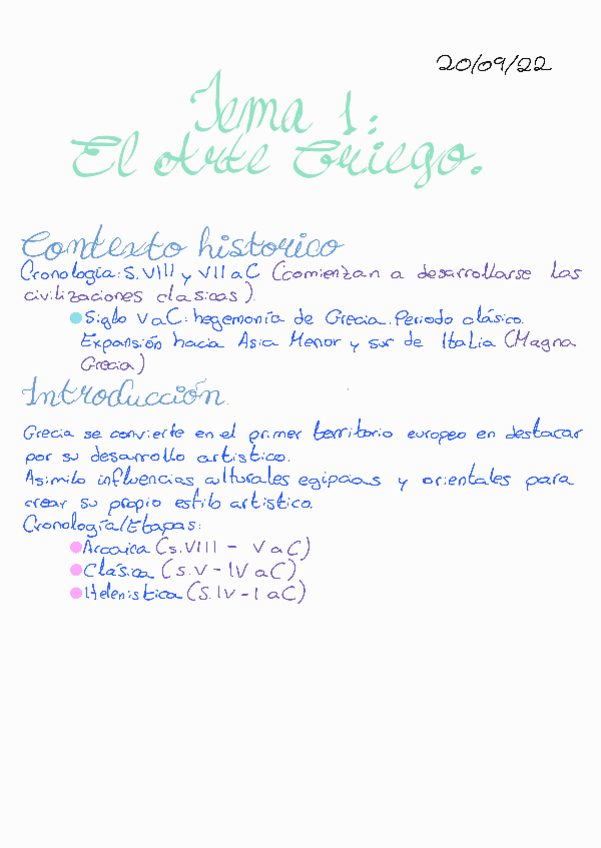 20/09/22
Tema 1:
El Arte Griego.
Contexto historico
Cronologia: S.VIII y VII aC (comienzan a desarrollarse las
civilizaciones clasicas).
Siglo V aC: hegemonía de Grecia. Periodo clásico.
Expansión hacia Asia Menor y sur de Italia (Magna
Grecia)
Introducción.
Grecia se convierte en el primer territorio europeo en destacar
por su desarrollo artistico.
Asimila influencias culturales egipcias y orientales para
crear su propio estilo artistico.
Cronología/Etapas:
Arcaica (s.VIII - V aC)
Clásica (S.V - IV aC)
Helenistica (S.IV - I aC)